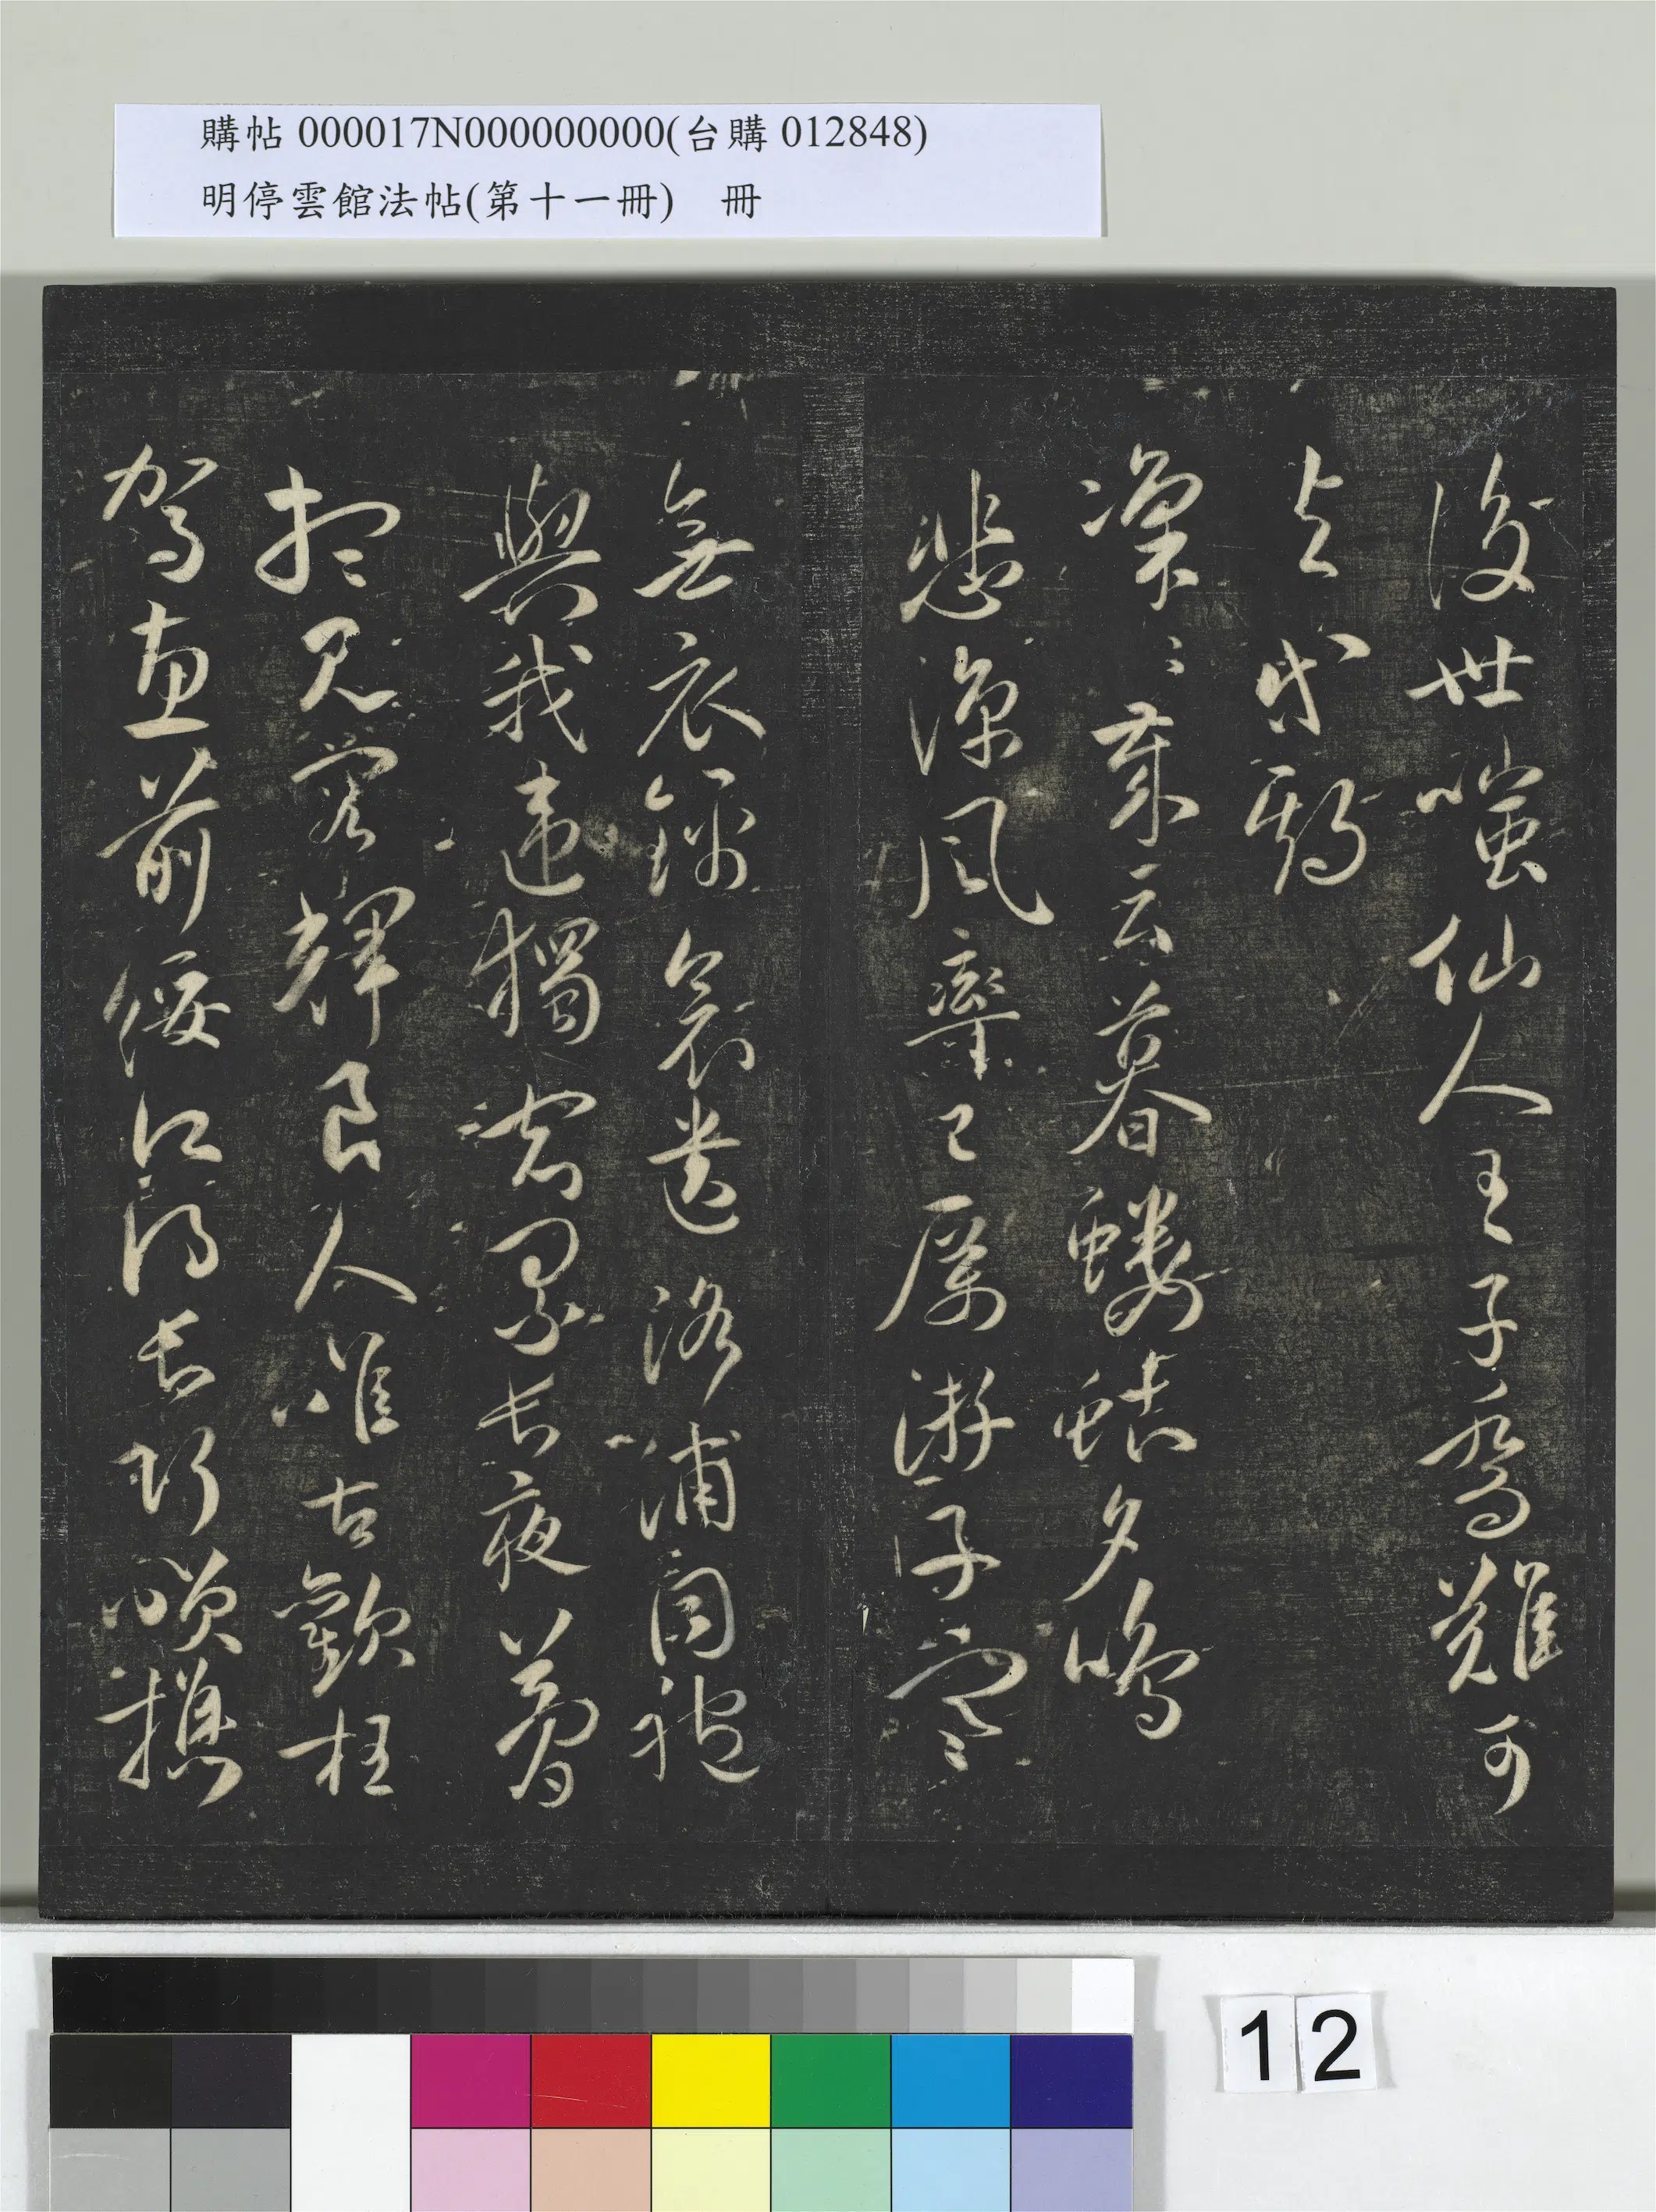 購帖 000017N000000000(台購 012848)
明停雲館法帖(第十一冊) 冊
後世嗤仙人王子喬難可
与等期
凜〻歲云暮螻蛄夕鳴
悲涼風率已厲游子寒
無衣錦衾遺洛浦同袍
與我違獨宿累長夜夢
想見容輝良人惟古歡枉
駕惠前綏願得長巧咲攜
12